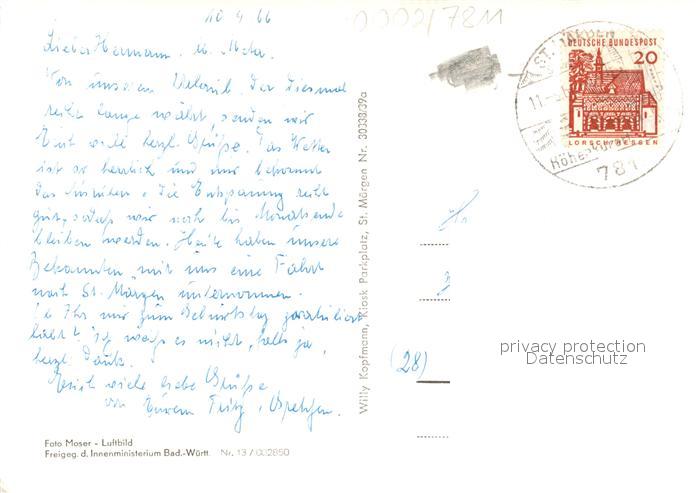 10 4 66
00021781
Lieber Hermann u. Meta.
Von unserem Urlaub der diesmal
recht lange währt, senden wir
Euch viele herzl. Grüße. Das Wetter
ist so herrlich und mir bekommt
das Ausruhen u. die Entspannung recht
gut, sodaß wir noch bis Monatsende
bleiben werden. Heute haben unsere
Bekannten mit uns eine Fahrt
nach St. Märgen unternommen.
Ihr mir zum Geburtstag gratuliert
habt? Ich weiß es nicht, falls ja,
herzl. Dank.
Euch viele liebe Grüße
von Eurem Fritz u.
Willy Kopfmann, Kiosk Parkplatz, St. Märgen Nr. 30338/39a
ST. MÄRGEN
11.
Höhenkurort
781
DEUTSCHE BUNDESPOST
20
LORSCH/HESSEN
(28)
privacy protection
Datenschutz
Foto Moser - Luftbild
Freigeg. d. Innenministerium Bad.-Württ. Nr. 13/002850